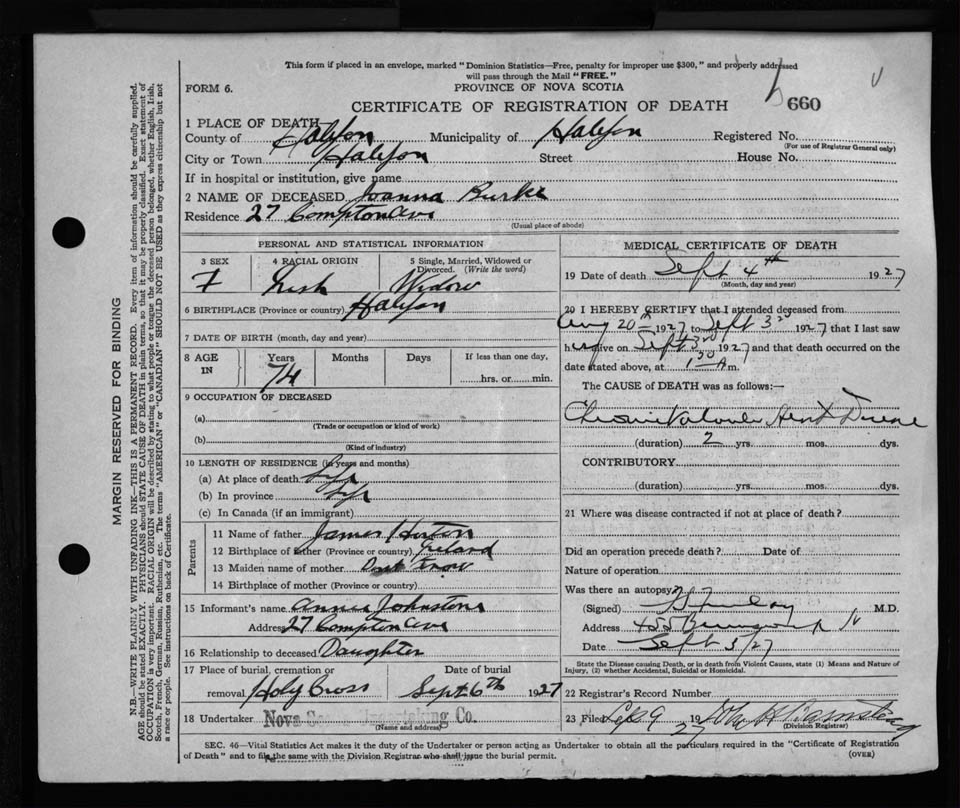 This form if placed in an envelope, marked "Dominion Statistics—Free, penalty for improper use $300," and properly addressed
will pass through the Mail "FREE."
FORM 6.
PROVINCE OF NOVA SCOTIA
CERTIFICATE OF REGISTRATION OF DEATH
660
1 PLACE OF DEATH
County of Halifax Municipality of Halifax Registered No.
(For use of Registrar General only)
City or Town Halifax Street House No.
If in hospital or institution, give name
2 NAME OF DECEASED Joanna Burke
Residence 27 Compton Ave
(Usual place of abode)
PERSONAL AND STATISTICAL INFORMATION
3 SEX 4 RACIAL ORIGIN 5 Single, Married, Widowed or
Divorced. (Write the word)
F Irish Widow
6 BIRTHPLACE (Province or country) Halifax
7 DATE OF BIRTH (month, day and year)
8 AGE IN Years Months Days If less than one day,
74 hrs. or min.
9 OCCUPATION OF DECEASED
(a)
(Trade or occupation or kind of work)
(b)
(Kind of industry)
10 LENGTH OF RESIDENCE (in years and months)
(a) At place of death Life
(b) In province Life
(c) In Canada (if an immigrant)
Parents
11 Name of father James
12 Birthplace of father (Province or country) Ireland
13 Maiden name of mother Dont know
14 Birthplace of mother (Province or country)
15 Informant's name Annie Johnstone
Address 27 Compton Ave
16 Relationship to deceased Daughter
17 Place of burial, cremation or Date of burial
removal Holy Cross Sept 6th 1927
18 Undertaker Nova Undertaking Co.
(Name and address)
MEDICAL CERTIFICATE OF DEATH
19 Date of death Sept 4th 1927
(Month, day and year)
20 I HEREBY CERTIFY that I attended deceased from
Aug 20th 1927 to Sept 3rd 1927 that I last saw
her alive on Sept 3rd 1927 and that death occurred on the
date stated above, at 130 A m.
The CAUSE OF DEATH was as follows:—
Chronic Valvular Heart Disease
(duration) 2 yrs. mos. dys.
CONTRIBUTORY
(duration) yrs. mos. dys.
21 Where was disease contracted if not at place of death?
Did an operation precede death? Date of
Nature of operation
Was there an autopsy?
(Signed) M.D.
Address 455 Brunswick St
Date Sept 5/27
State the Disease causing Death, or in death from Violent Causes, state (1) Means and Nature of
Injury, (2) whether Accidental, Suicidal or Homicidal.
22 Registrar's Record Number
23 Filed Sep 9 1927
(Division Registrar)
SEC. 46—Vital Statistics Act makes it the duty of the Undertaker or person acting as Undertaker to obtain all the particulars required in the "Certificate of Registration
of Death" and to file the same with the Division Registrar who shall issue the burial permit.
(OVER)
MARGIN RESERVED FOR BINDING
N.B.—WRITE PLAINLY WITH UNFADING INK—THIS IS A PERMANENT RECORD. Every item of information should be carefully supplied.
AGE should be stated EXACTLY. PHYSICIANS should STATE CAUSE OF DEATH in plain terms, so that it may be properly classified. Exact statement of
OCCUPATION is very important. RACIAL ORIGIN will be described by stating to what people or tongue the deceased person belonged, whether English, Irish,
Scotch, French, German, Russian, Ruthenian, etc. The terms "AMERICAN" or "CANADIAN" SHOULD NOT BE USED as they express citizenship but not
a race or people. See instructions on back of Certificate.